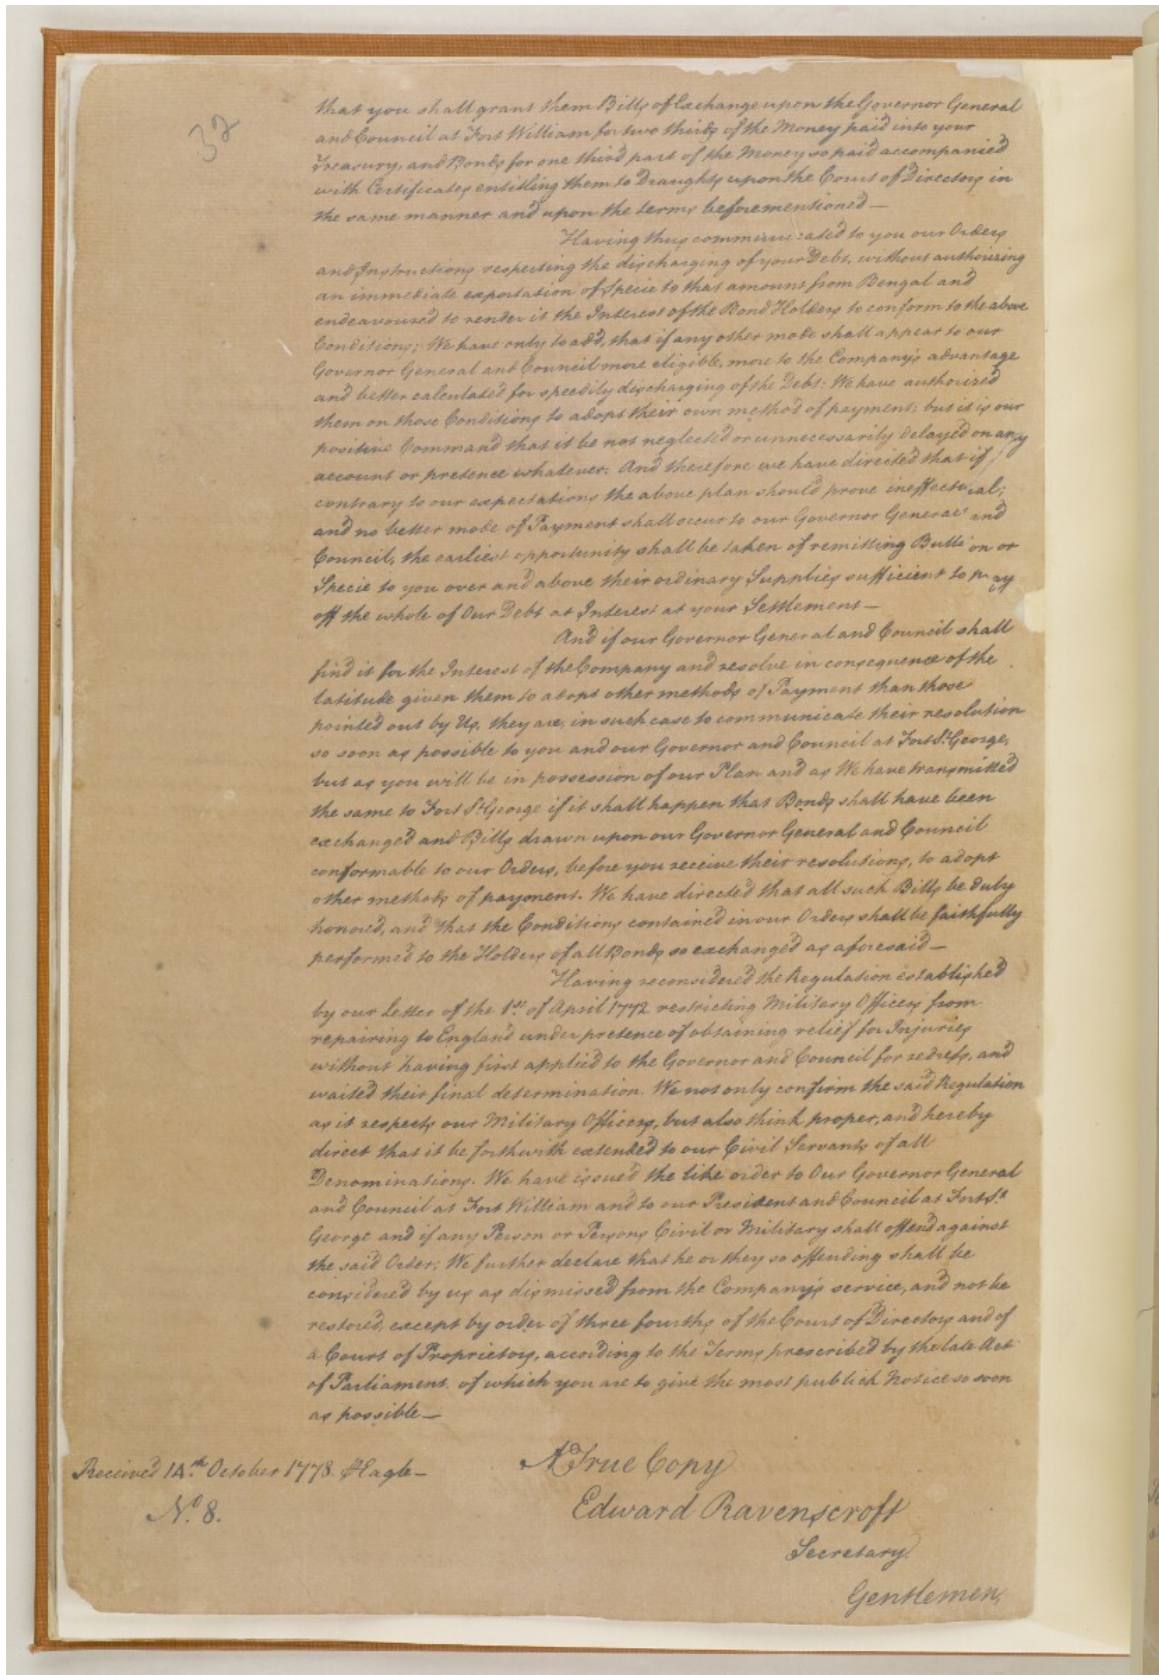 32
that you shall grant them Bills of Exchange upon the Governor General
and Council at Fort William for two thirds of the Money paid into your
Treasury, and Bonds for one third part of the Money so paid accompanied
with Certificates entitling them to Draughts upon the Court of Directors in
the same manner and upon the terms beforementioned —
Having thus communicated to you our Orders
and Instructions respecting the discharging of your Debt, without authorizing
an immediate exportation of Specie to that amount from Bengal and
endeavoured to render it the Interest of the Bond Holders to conform to the above
Conditions; We have only to add, that if any other mode shall appear to our
Governor General and Council more eligible, more to the Company's advantage
and better calculated for speedily discharging of the Debt: We have authorized
them on those Conditions to adopt their own method of payment; but it is our
positive Command that it be not neglected or unnecessarily delayed on any
account or pretence whatever. And therefore we have directed that if
contrary to our expectations the above plan should prove ineffectual;
and no better mode of Payment shall occur to our Governor General and
Council, the earliest opportunity shall be taken of remitting Bullion or
Specie to you over and above their ordinary Supplies sufficient to pay
off the whole of Our Debt at Interest at your Settlement —
And if our Governor General and Council shall
find it for the Interest of the Company and resolve in consequence of the
latitude given them to adopt other methods of Payment than those
pointed out by Us, they are, in such case to communicate their resolution
so soon as possible to you and our Governor and Council at Fort St. George,
but as you will be in possession of our Plan and as We have transmitted
the same to Fort St George if it shall happen that Bonds shall have been
exchanged and Bills drawn upon our Governor General and Council
conformable to our Orders, before you receive their resolutions, to adopt
other methods of payment. We have directed that all such Bills be duly
honored, and that the Conditions contained in our Orders shall be faithfully
performed to the Holders of all Bonds so exchanged as aforesaid —
Having reconsidered the Regulation established
by our Letter of the 1st. of April 1772 restricting Military Officers from
repairing to England under pretence of obtaining relief for Injuries
without having first applied to the Governor and Council for redress, and
waited their final determination. We not only confirm the said Regulation
as it respects our Military Officers, but also think proper, and hereby
direct that it be forthwith extended to our Civil Servants of all
Denominations. We have issued the like order to Our Governor General
and Council at Fort William and to our President and Council at Fort St.
George and if any Person or Persons Civil or Military shall offend against
the said Order; We further declare that he or they so offending shall be
considered by us as dismissed from the Company's service, and not be
restored, except by order of three fourths of the Court of Directors and of
a Court of Proprietors, according to the Terms prescribed by the late Act
of Parliament. of which you are to give the most publick Notice so soon
as possible —
A True Copy
Received 14th. October 1778 Eagle —
Edward Ravenscroft
No. 8.
Secretary
Gentlemen,